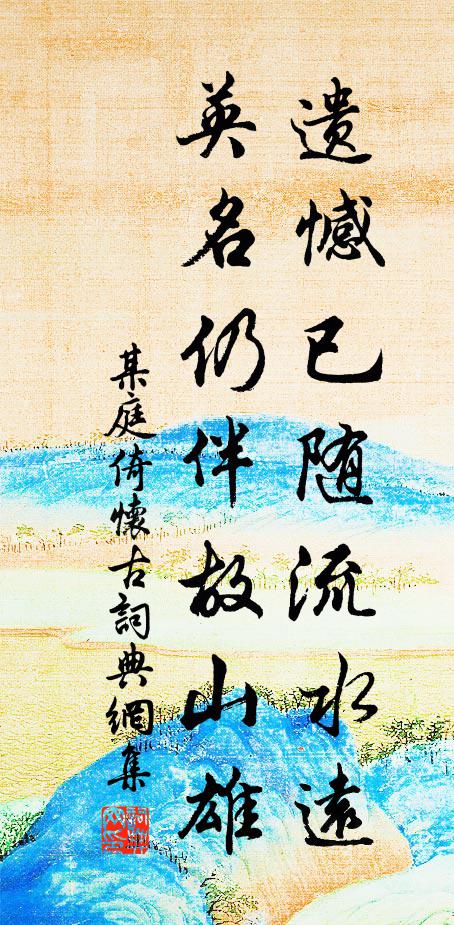 遺憾已随流水遠
英名仍伴故山雄
某庭倚懷古詞典網集